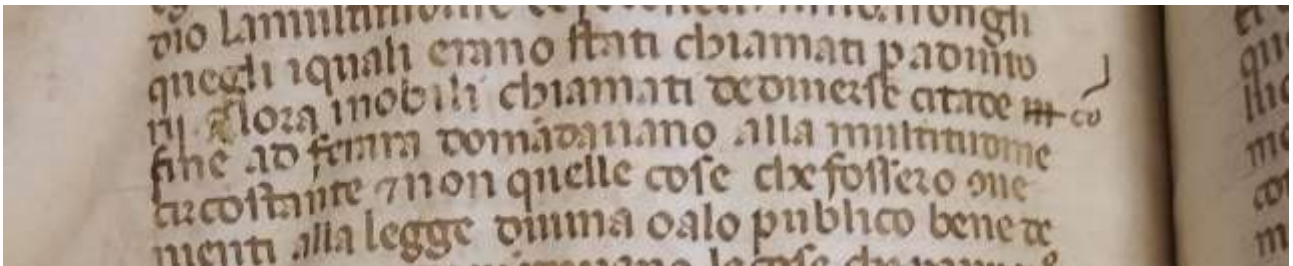 dio la multitudine
quegli iquali erano stati chiamati p adiuto
rij. Alora inobili chiamati dediuerse citade co
fine ad ferrara domãdauano alla multitudine
circostante ⁊ non quelle cose che fossero ɔue
nienti alla legge diuina o alo publico bene de
le cose che